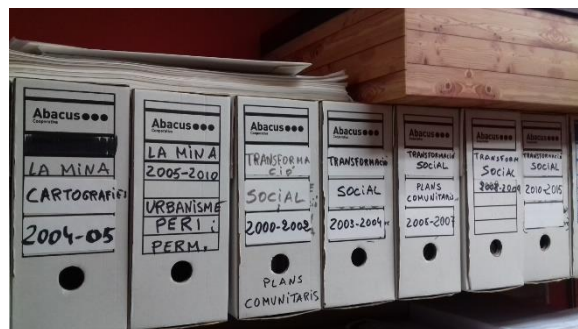 Abacus
Cooperativa
LA MINA
CARTOGRAFIES
2004-05
Abacus
Cooperativa
LA MINA
2005-2010
URBANISME
PERI i
PERM.
Abacus
Cooperativa
TRANSFORMA
CIÓ
SOCIAL
2000-2002
PLANS
COMUNITARIS
Abacus
Cooperativa
TRANSFORMACIÓ
SOCIAL
2003-2004
Abacus
Cooperativa
TRANSFORMACIÓ
SOCIAL
PLANS
COMUNITARIS
2006-2007
Abacus
Cooperativa
TRANSFORM
SOCIAL
Abacus
Cooperativa
TRANSFORMACIÓ
SOCIAL
2010-2015